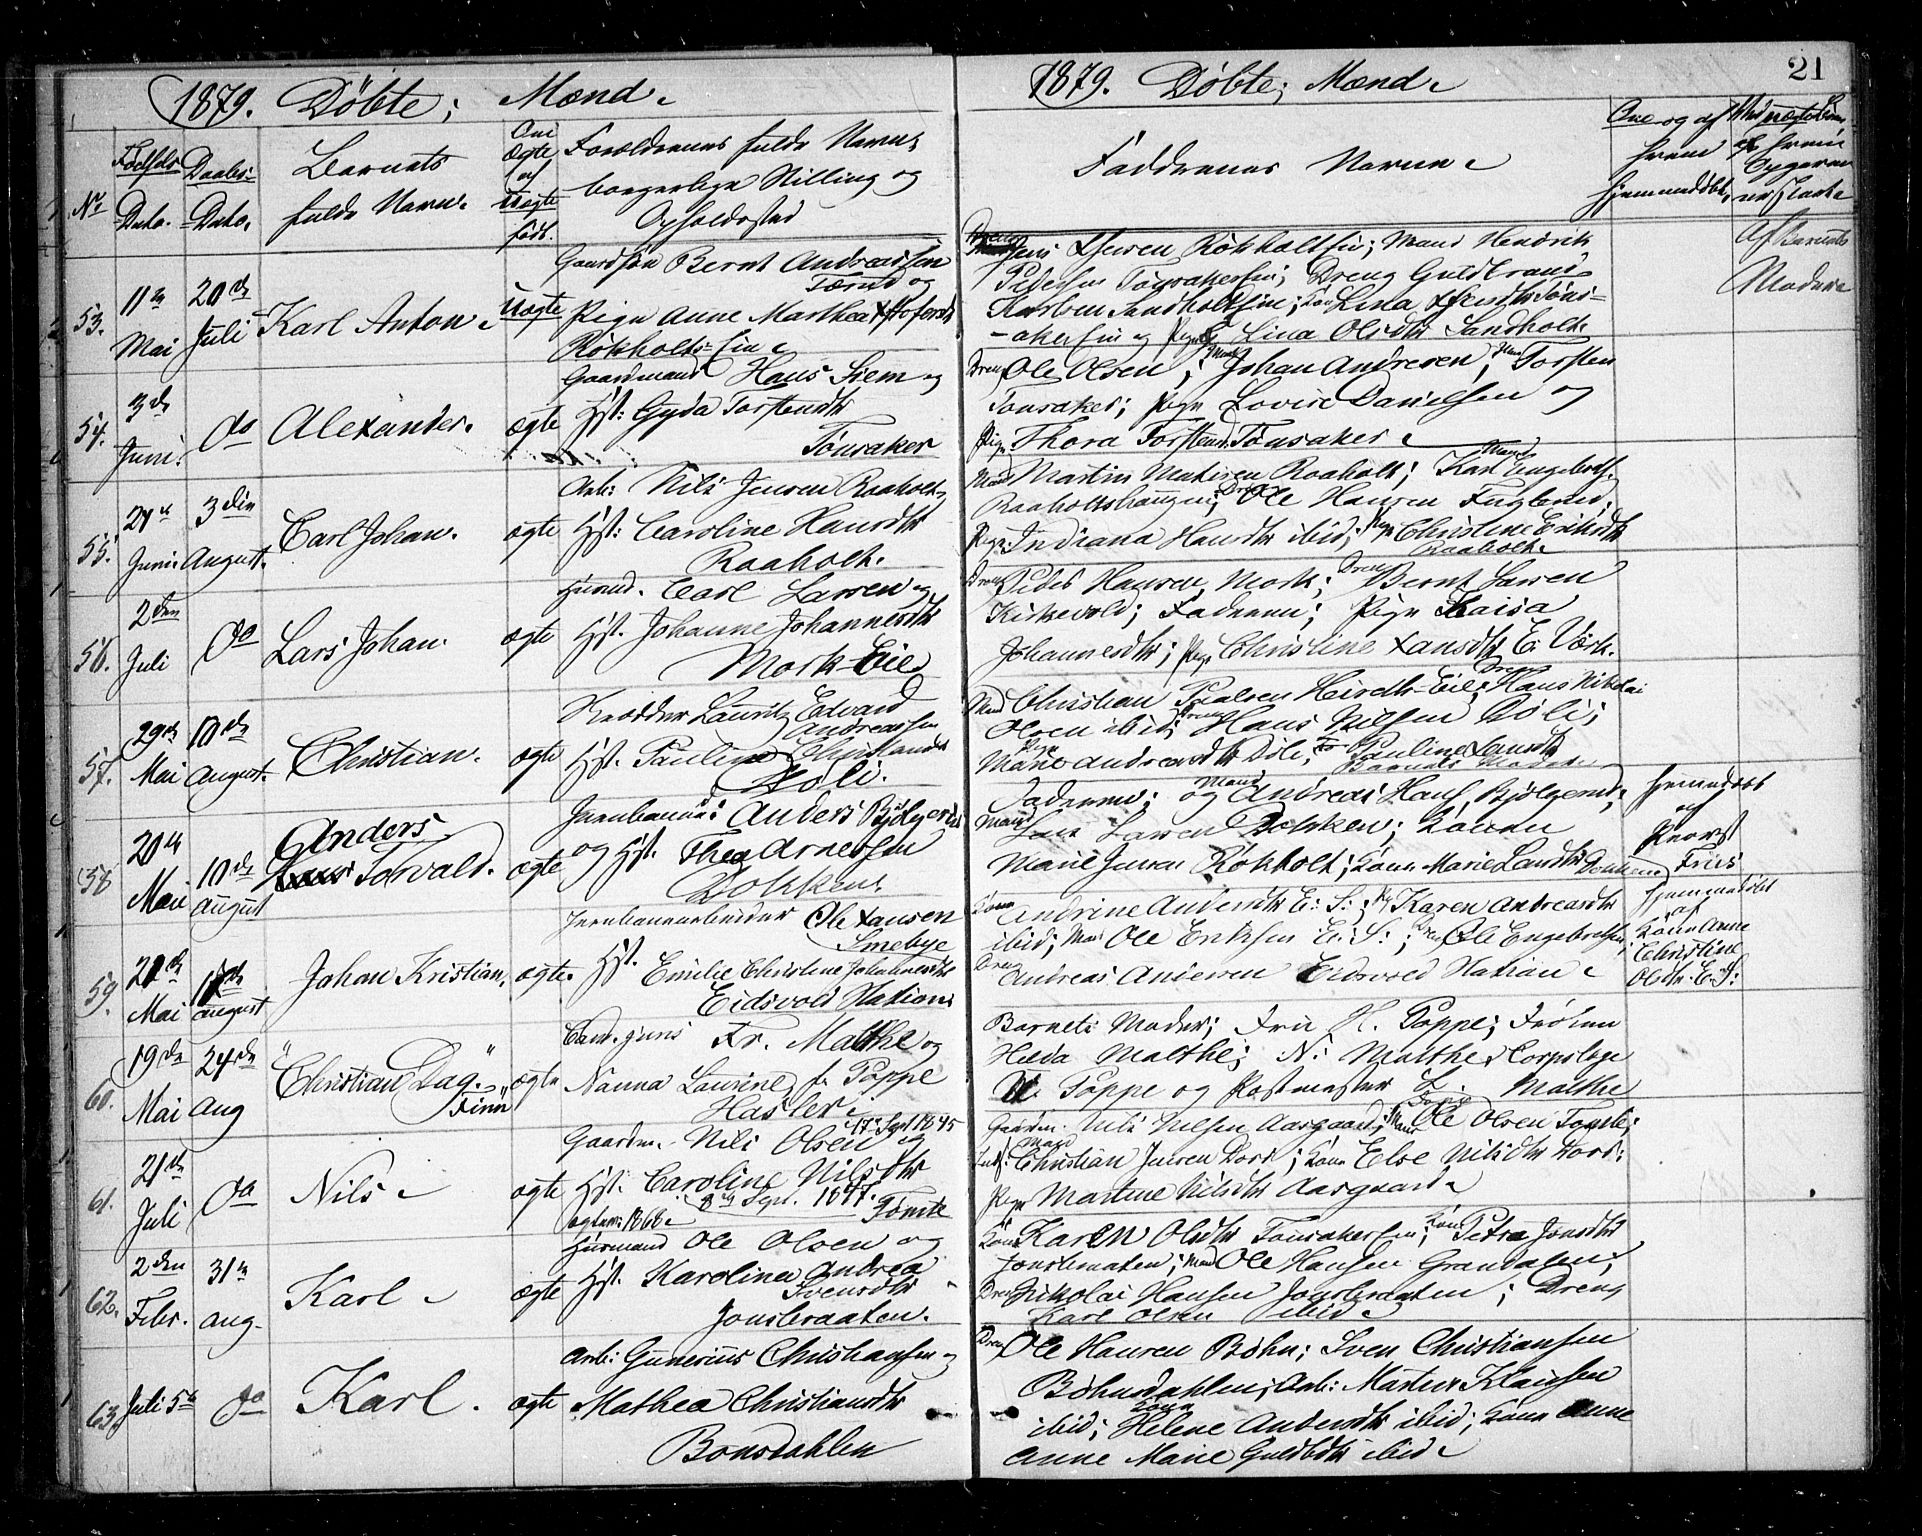 1879. Döbte; Mænd.
No
Fødsels-
Dato.
Daabs-
Dato.
Barnets
fulde Navn.
Om
Ægte
el
Uægte
født.
Forældrenes fulde Navne,
borgerlige Stilling og
Opholdssted
53.
11te
Mai
20de
Juli
Karl Anton.
Uægte
Gaardsøn Bernt Andreassen
Tærud og
Pige Anne Marthea
Røkholts-Ein
54.
3de
Juni.
do
Alexander.
ægte
Gaardmand Hans Siem og
Hst: Gyda Torstensdtr
Tönsaker
55.
Juni.
3die
August.
Carl Johan.
ægte
Arb: Nils Jensen Raaholt og
Hst: Caroline Hansdtr
Raaholt.
56.
2den
Juli
do
Lars Johan.
ægte
Husmd. Carl Larsen og
Hst. Johanne Johannesdtr
Mork-Eie
57.
29de
Mai
10de
August.
Christian.
ægte
Lauritz Edvard
Andreassen
Hst. Pauline Christiansdtr
Döli.
58
20de
Mai
10de
August
Anders
Torvald.
ægte
Jernbanea: Anders Bjölgerud
og Hst. Thea Arnesen
Dokken.
59
Mai
august
Johan Kristian,
ægte.
Jernbanearbeider Ole Hansen
Smebye
Hst. Emilie Christine Johannesdtr
Eidsvold Station
60.
19de
Mai
24de
Aug
"Christian Dag"
Finn"
ægte
Cand. juris Fr. Malthe og
Nanna Laurine f. Poppe
Hasler
61.
21de
Juli
do
Nils
ægte
17 Sept 1845
Gaardm. Nils Olsen og
Hst. Caroline Nilsdtr
8de Sept. 1847. Tömte
egtev. 1868
62.
2den
Febr.
31te
aug.
Karl
ægte
Husmand Ole Olsen og
Hst. Karoline Andrea
Svensdtr
Jonsbraaten.
63.
Juli 5te
do
Karl.
ægte
Arb: Gunerius Christiansen og
Mathea Christiansdtr
Bonsdahlen
1879. Döbte; Mænd.
21
Faddernes Navne
Om og af
hvem
hjemmedöbt.
Af Barnets
Moder
Jens Röhholtsein; Mand Hendrik
Pedersen Tönsakersein; Dreng Guldbrand
Karlsen Sandholtsein; Lina Töns-
akersein og Pige Lina Olsdtr Sandholt.
Dreng Ole Olsen; Mand Johan Andresen; Torsten
Tönsaker; Pige Lovise Danielsen og
Pige Thora Torstensd. Tönsaker
Mand Martin Raaholt; Mand Karl Engebretsen
Raaholtshaugen; Dreng Ole Hansen Fugleud;
Pige Indiana Hansdtr ibid; Pige Christine Eriksdtr
Raaholt.
Dreng Peder Hansen Mork; Dreng Bernt Larsen
Kirkevold; Faderen; Pige Kaisa
Johannesdtr; Pige Christine Hansdtr E. Værk.
Mand Christian Paulsen Eie; Dreng Hans Nikolai
Olsen ibid; Dreng Hans Nilsen Döli;
Pige Marie Andreasdtr Döli; Pauline
Barnets Moder
Faderen; og Mand Andreas Hans. Bjölgerud;
Mand Lars Larsen Dokken; Konen
Marie Jensen Rökholt; Kone Marie Larsdtr
Hjemmedöbt
af
Provst
Friis
Kone Andrine Andersdtr E. S:; Pg Karen Andreasdtr
ibid; Mand Ole Eriksen E. S:; Dreng Ole Engebretsen;
Dreng Andreas Andersen Eidsvold Station
Hjemmedöbt
af
Kone Anne
Christine
Olsdtr. E. S:
Barnets Moder; Fru H. Poppe; Fröken
Hilda Malthe; N. Malthe, Corpslæge
Poppe og Postmester L. Malthe
Gaardm. Nils Nilsen Aasgaard; Mand Ole Olsen Tömte;
Mand Christian Jensen Dorr; Kone Else Nilsdtr Dorr;
Pige Martine Nilsdtr Aasgaard
Kone Karen Olsdtr Tönsakersein; Kone Petra Jonsdtr
Jonsbraaten; Mand Ole Hansen Grandalen;
Dreng Nikolai Hansen Jonsbraaten; Dreng
Karl Olsen ibid
Dreng Ole Hansen Böhn; Sven Christiansen
Böhnsdahlen; Arb: Martin Klausen
ibid; Kone Helene Andersdtr ibid; Kone Anne
Anne Marie Guldbdtr ibid